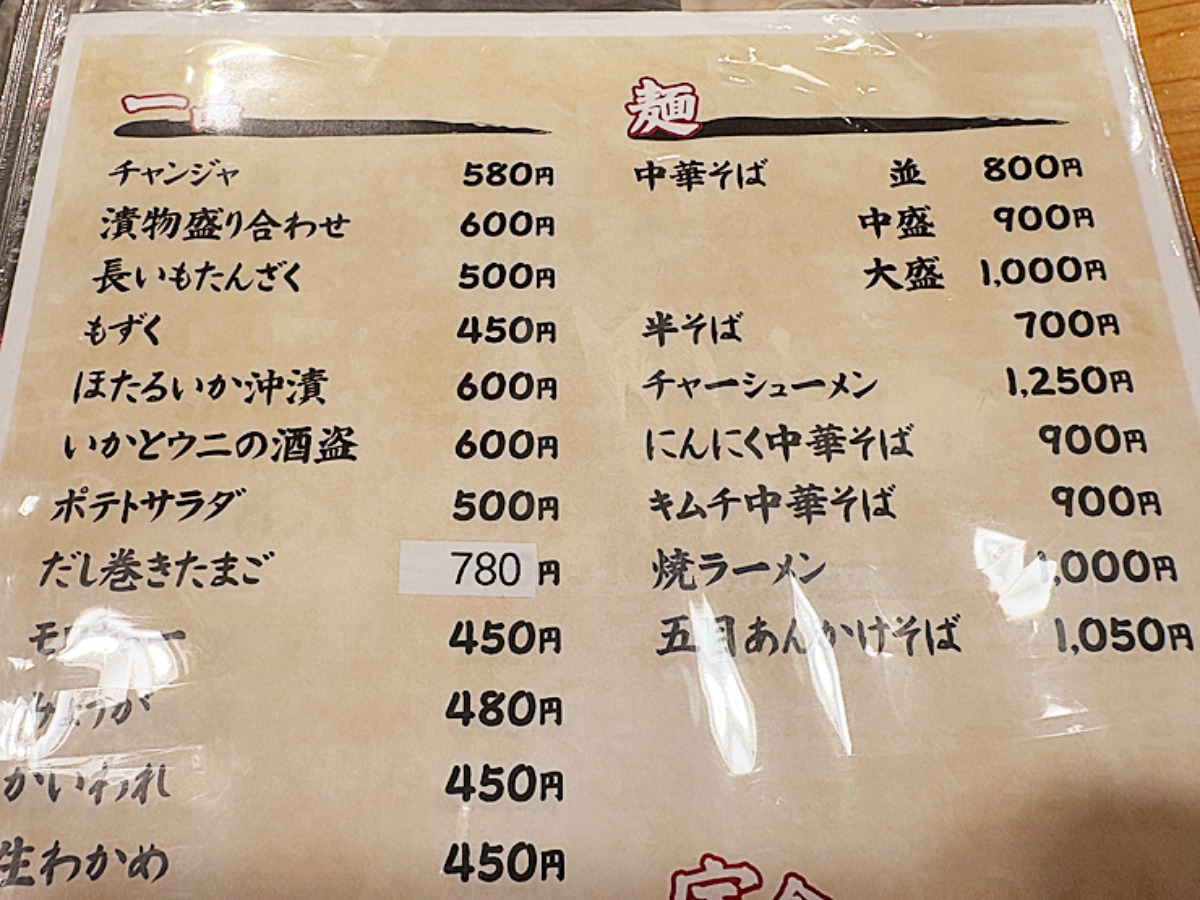 一品
チャンジャ 580円
漬物盛り合わせ 600円
長いもたんざく 500円
もずく 450円
ほたるいか沖漬 600円
いかとウニの酒盗 600円
ポテトサラダ 500円
だし巻きたまご 780円
450円
480円
かいわれ 450円
生わかめ 450円
麺
中華そば 並 800円
中盛 900円
大盛 1,000円
半そば 700円
チャーシューメン 1,250円
にんにく中華そば 900円
キムチ中華そば 900円
焼ラーメン 1,000円
五目あんかけそば 1,050円
定食